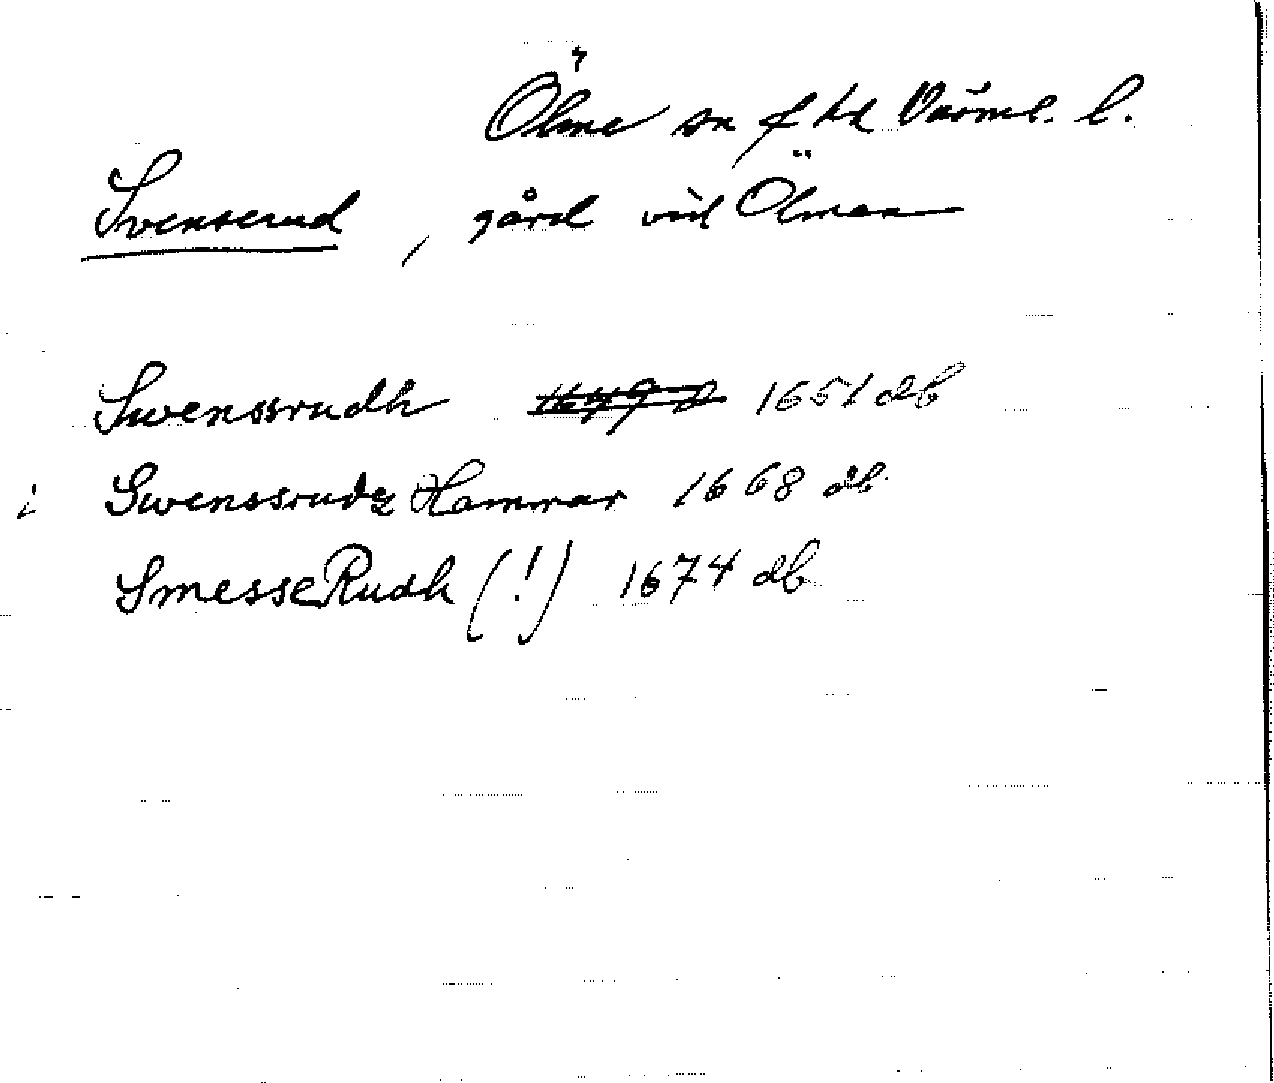 Ölme sn f hd Värml. l.
Svenserud, gård vid Ölman
Swenssrudh 1649 d 1651 db
i Swenssrudz Hammar 1668 db
SmesseRudh (!) 1674 db